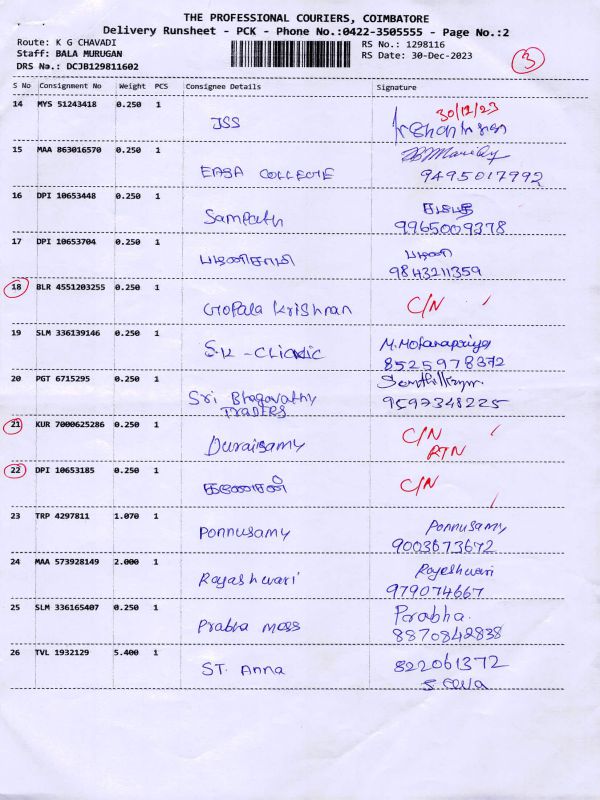 THE PROFESSIONAL COURIERS, COIMBATORE
Delivery Runsheet - PCK - Phone No.:0422-3505555 - Page No.:2
Route: K G CHAVADI RS No.: 1298116
Staff: BALA MURUGAN RS Date: 30-Dec-2023
DRS No.: DCJB129811602 3
S No Consignment No Weight PCS Consignee Details Signature
30/12/23
14 MYS 51243418 0.250 1
JSS
15 MAA 863016570 0.250 1
EASA COLLEGE 9495017992
16 DPI 10653448 0.250 1
Sampath 9965009378
17 DPI 10653704 0.250 1 பழனி
பழனிசாமி 9843211359
18 BLR 4551203255 0.250 1
Gopala Krishnan C/N
19 SLM 336139146 0.250 1
S.K - CLINIC 8525978372
20 PGT 6715295 0.250 1
Sri Bhagavathy 9597348225
TRADERS
21 KUR 7000625286 0.250 1
C/N
Duraisamy RTN
22 DPI 10653185 0.250 1
கணேசன் C/N
23 TRP 4297811 1.070 1
Ponnusamy Ponnusamy
9003673672
24 MAA 573928149 2.000 1
Rajeshwari Rajeshwari
979074667
25 SLM 336165407 0.250 1
Prabha mess Prabha.
8870842838
26 TVL 1932129 5.400 1
ST. Anna 822061372